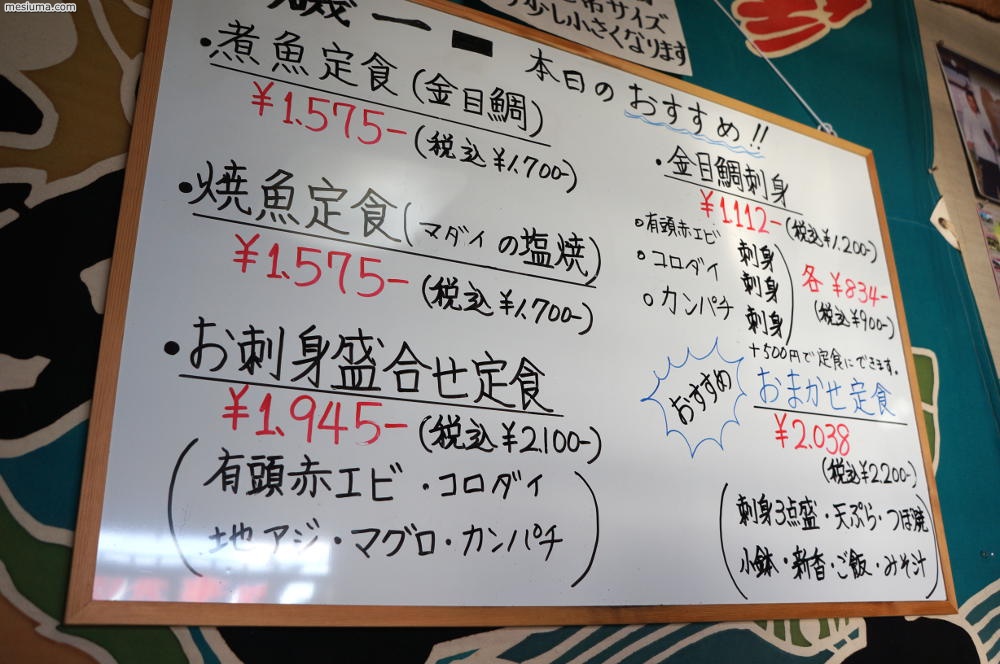 mesiuma.com
サイズ
少し小さくなります
磯一
本日のおすすめ!!
・煮魚定食(金目鯛)
¥1.575-
(税込¥1.700-)
・焼魚定食(マダイの塩焼)
¥1.575-
(税込¥1.700-)
・お刺身盛合せ定食
¥1.945-
(税込¥2.100-)
(有頭赤エビ・コロダイ
地アジ・マグロ・カンパチ)
・金目鯛刺身
¥1112-
(税込¥1.200-)
○有頭赤エビ 刺身
○コロダイ 刺身
○カンパチ 刺身
各¥834-
(税込¥900-)
+500円で定食にできます。
おすすめ
おまかせ定食
¥2.038
(税込¥2.200-)
(刺身3点盛・天ぷら・つぼ焼
小鉢・新香・ご飯・みそ汁)